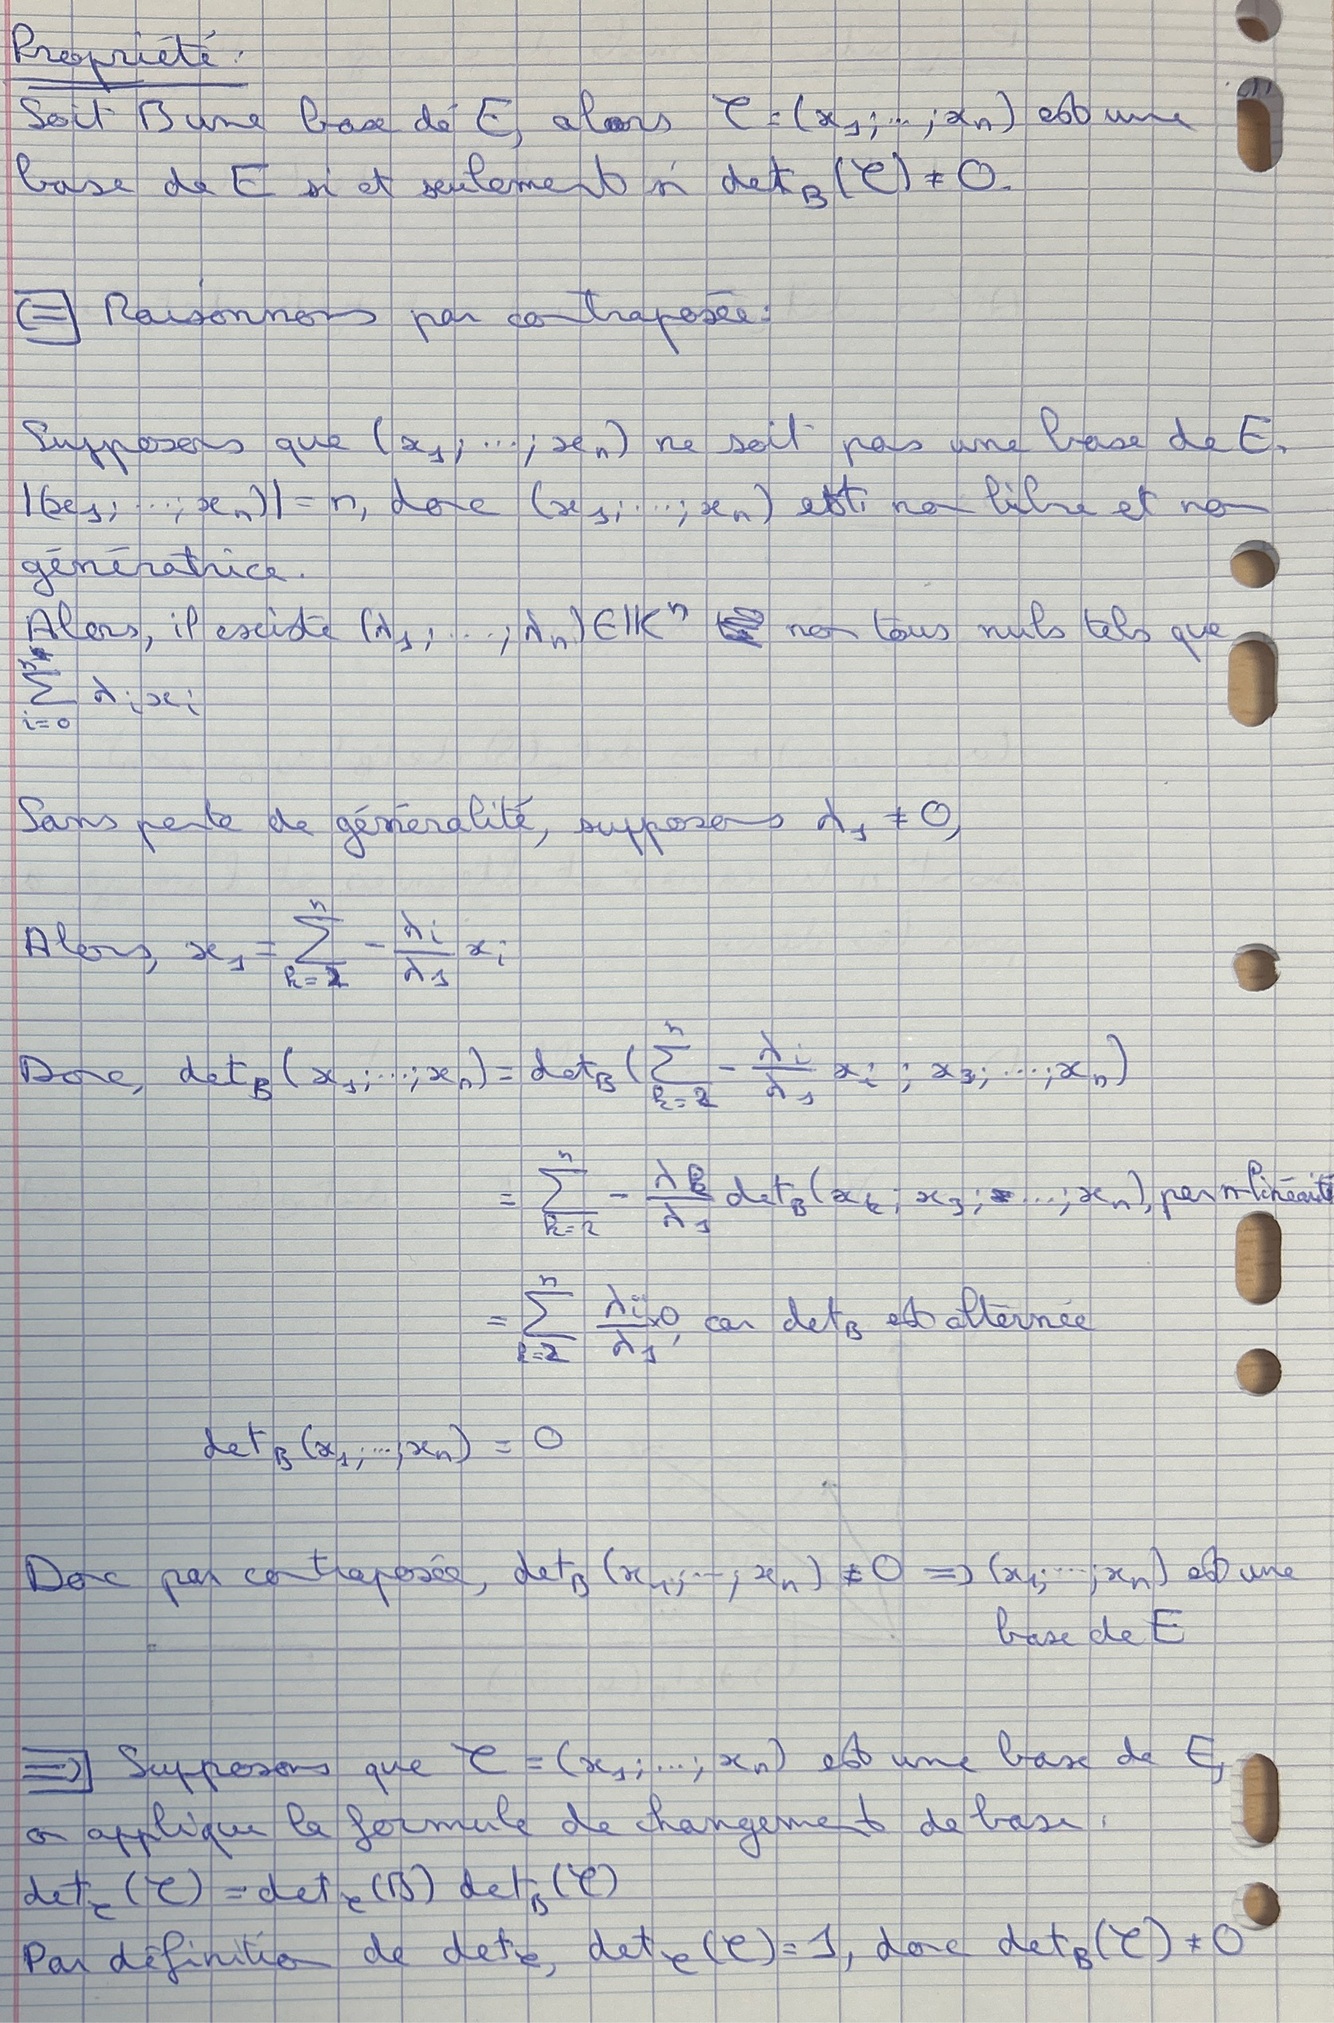 Propriété :
Soit B une base de E, alors 𝒞 = (x₁; ...; xₙ) est une
base de E si et seulement si det_B(𝒞) ≠ 0.
⇐ Raisonnons par contraposée :
Supposons que (x₁; ...; xₙ) ne soit pas une base de E.
|(x₁; ...; xₙ)| = n, donc (x₁; ...; xₙ) est non libre et non
génératrice.
Alors, il existe (λ₁; ...; λₙ) ∈ 𝕂ⁿ non tous nuls tels que
∑_{i=0}^{n} λᵢxᵢ
Sans perte de généralité, supposons λ₁ ≠ 0,
Alors, x₁ = ∑_{k=2}^{n} - λᵢ/λ₁ xᵢ
Donc, det_B(x₁; ...; xₙ) = det_B(∑_{k=2}^{n} - λᵢ/λ₁ xᵢ ; x₂; ...; xₙ)
= ∑_{k=2}^{n} - λₖ/λ₁ det_B(xₖ; x₂; ...; xₙ), par n-linéarité
= ∑_{k=2}^{n} λᵢ/λ₁ × 0, car det_B est alternée
det_B(x₁; ...; xₙ) = 0
Donc par contraposée, det_B(x₁; ...; xₙ) ≠ 0 ⇒ (x₁; ...; xₙ) est une
base de E
⇒ Supposons que 𝒞 = (x₁; ...; xₙ) est une base de E,
on applique la formule de changement de base.
det_𝒞(𝒞) = det_𝒞(B) det_B(𝒞)
Par définition de det_𝒞, det_𝒞(𝒞) = 1, donc det_B(𝒞) ≠ 0